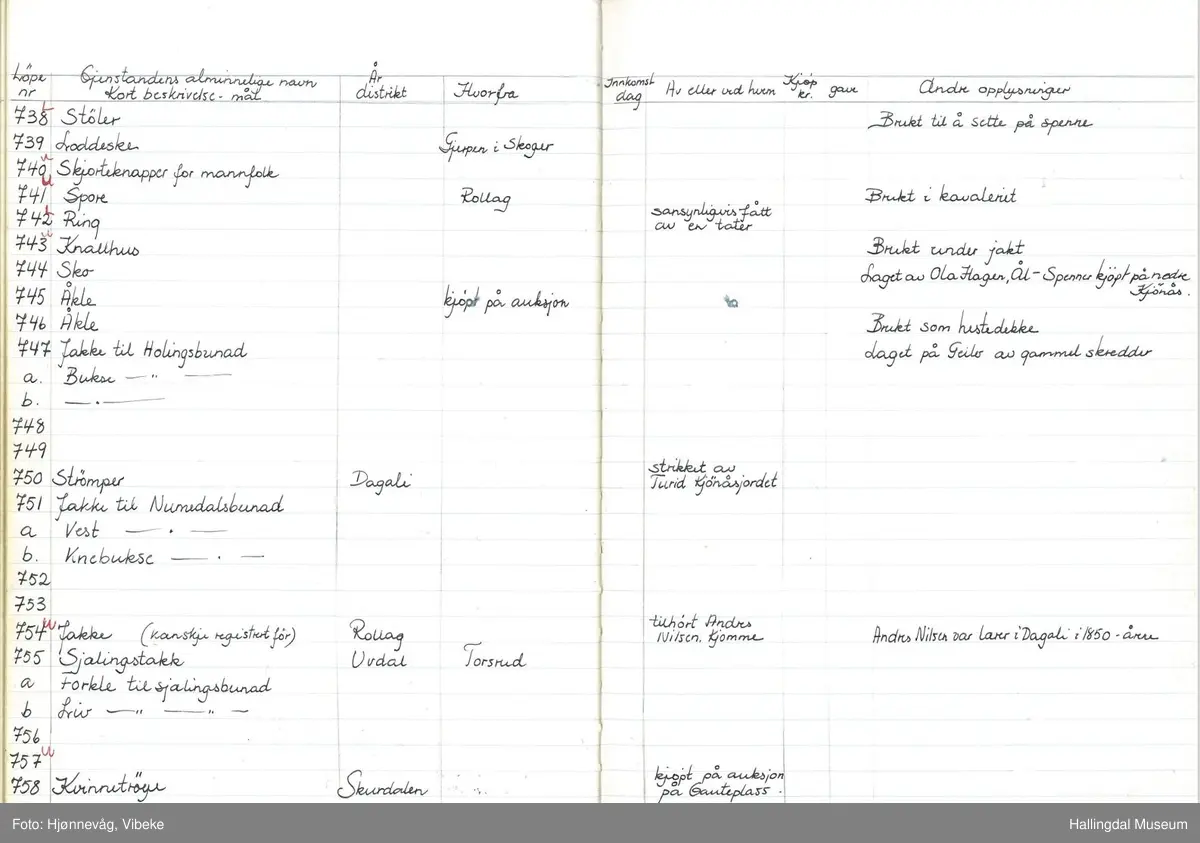 Löpe nr Gjenstandens alminnelige navn Kort beskrivelse - mål År distrikt Hvorfra Innkomst dag Av eller ved hvem Kjöp kr. gave Andre opplysninger
738 L Stöler Brukt til å sette på spenne
739 Loddeske Gjerpen i Skoger
740 u Skjorteknapper for mannfolk
741 u Spore Rollag Brukt i kavaleriet
742 L Ring sansynligvis fått av en tater
743 u Knallhus Brukt under jakt
744 Sko Laget av Ola Hagen, Ål - Spenner kjöpt på nedre Kjönås.
745 Åkle kjöpt på auksjon
746 Åkle Brukt som hestedekke
747 Jakke til Holingsbunad Laget på Geilo av gammel skredder
a. Bukse — " —
b. — " —
748
749
750 Strömper Dagali strikket av Turid Kjönåsjordet
751 Jakke til Numedalsbunad
a Vest — " —
b. Knebukse — " —
752
753
754 u Jakke (kanskje registrert för) Rollag tilhört Andres Nilsen. Kjomme Andres Nilsen var lærer i Dagali i 1850 - årene
755 Sjalingstakk Uvdal Torsrud
a Forkle til sjalingsbunad
b Liv — " — " —
756
757 u
758 Kvinnetröye Skurdalen kjöpt på auksjon på Gauteplass.
Foto: Hjønnevåg, Vibeke
Hallingdal Museum